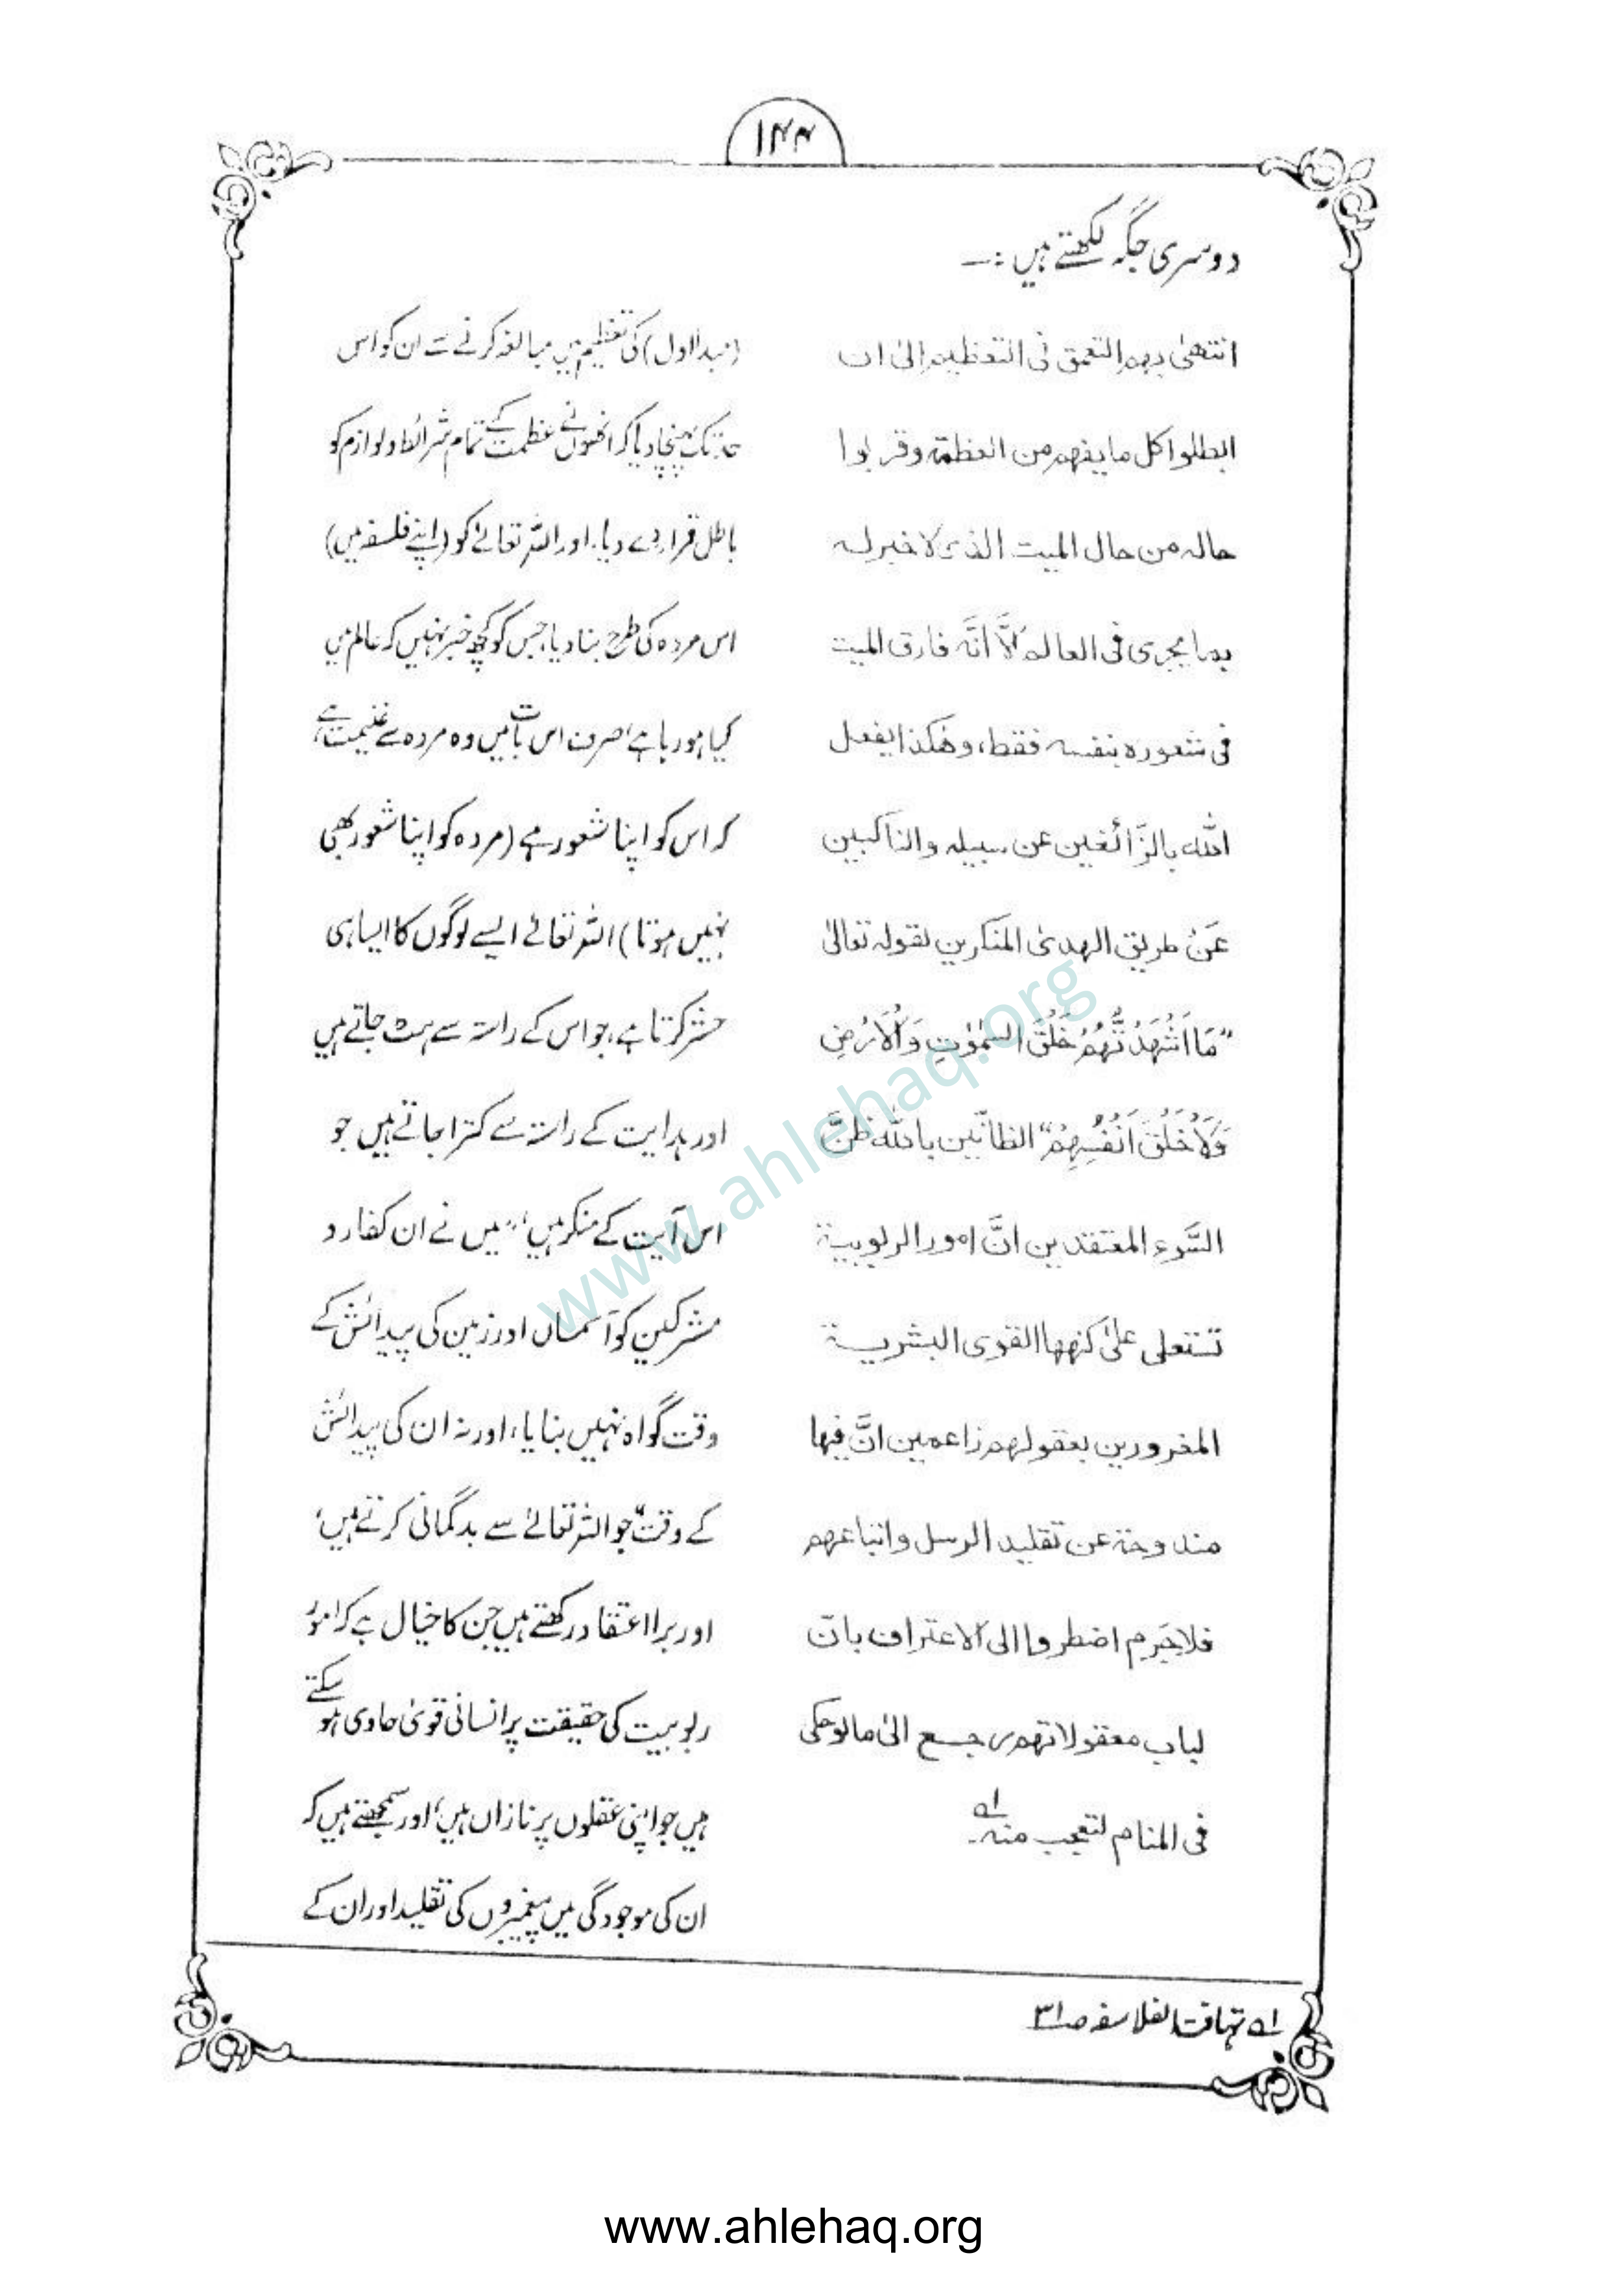 ۱۴۴
دوسری جگہ لکھتے ہیں :—
انتھیٰ بہم التعمق فی التعظیم الیٰ ان
ابطلوا کل ما یفہم من العظمۃ و قربوا
حالہ من حال المیت الذی لا خبر لہ
بما یجری فی العالم الّا انّہ فارق المیت
فی شعورہ بنفسہ فقط، وھٰکذا یفعل
اللّٰہ بالزّائغین عن سبیلہ والناکبین
عَنْ طریق الھدیٰ المنکرین لقولہ تعالیٰ
”مَا اَشْہَدْتُّهُمْ خَلْقَ السَّمٰوٰتِ وَالْاَرْضِ
وَلَا خَلْقَ اَنْفُسِهِمْ“ الظانّین باللّٰہ ظنَّ
السَّوءِ المعتقدین انَّ امور الربوبیۃ
تستعلی علیٰ کنھھا القوی البشریۃ
المغرورین بعقولھم زاعمین انَّ فیھا
مندوحۃ عن تقلید الرسل واتباعھم
فلا جَرم اضطروا الی الاعتراف بانّ
لباب معقولاتھم رجع الیٰ ما لو حکی
فی المنام لتعجب منہ۔ لہ
(مبدا اول) کی تعظیم میں مبالغہ کرنے سے ان کو اس
حد تک پہنچا دیا کہ انھوں نے عظمت کے تمام شرائط و لوازم کو
باطل قرار دے دیا، اور اللہ تعالےٰ کو (اپنے فلسفہ میں)
اس مردہ کی طرح بنا دیا جس کو کچھ خبر نہیں کہ عالم میں
کیا ہو رہا ہے، صرف اس بات میں وہ مردہ سے غنیمت ہے،
کہ اس کو اپنا شعور ہے (مردہ کو اپنا شعور بھی
نہیں ہوتا) اللہ تعالےٰ ایسے لوگوں کا ایسا ہی
حشر کرتا ہے، جو اس کے راستہ سے ہٹ جاتے ہیں
اور ہدایت کے راستہ سے کترا جاتے ہیں جو
اس آیت کے منکر ہیں، ”میں نے ان کفار و
مشرکین کو آسمان اور زمین کی پیدائش کے
وقت گواہ نہیں بنایا، اور نہ ان کی پیدائش
کے وقت“ جو اللہ تعالےٰ سے بدگمانی کرتے ہیں،
اور برا اعتقاد رکھتے ہیں جن کا خیال ہے کہ امور
ربوبیت کی حقیقت پر انسانی قویٰ حاوی ہو سکتے
ہیں جو اپنی عقلوں پر نازاں ہیں، اور سمجھتے ہیں کہ
ان کی موجودگی میں پیغمبروں کی تقلید اور ان کے
لہ تہافت الفلاسفہ ص۳۱
www.ahlehaq.org
www.ahlehaq.org